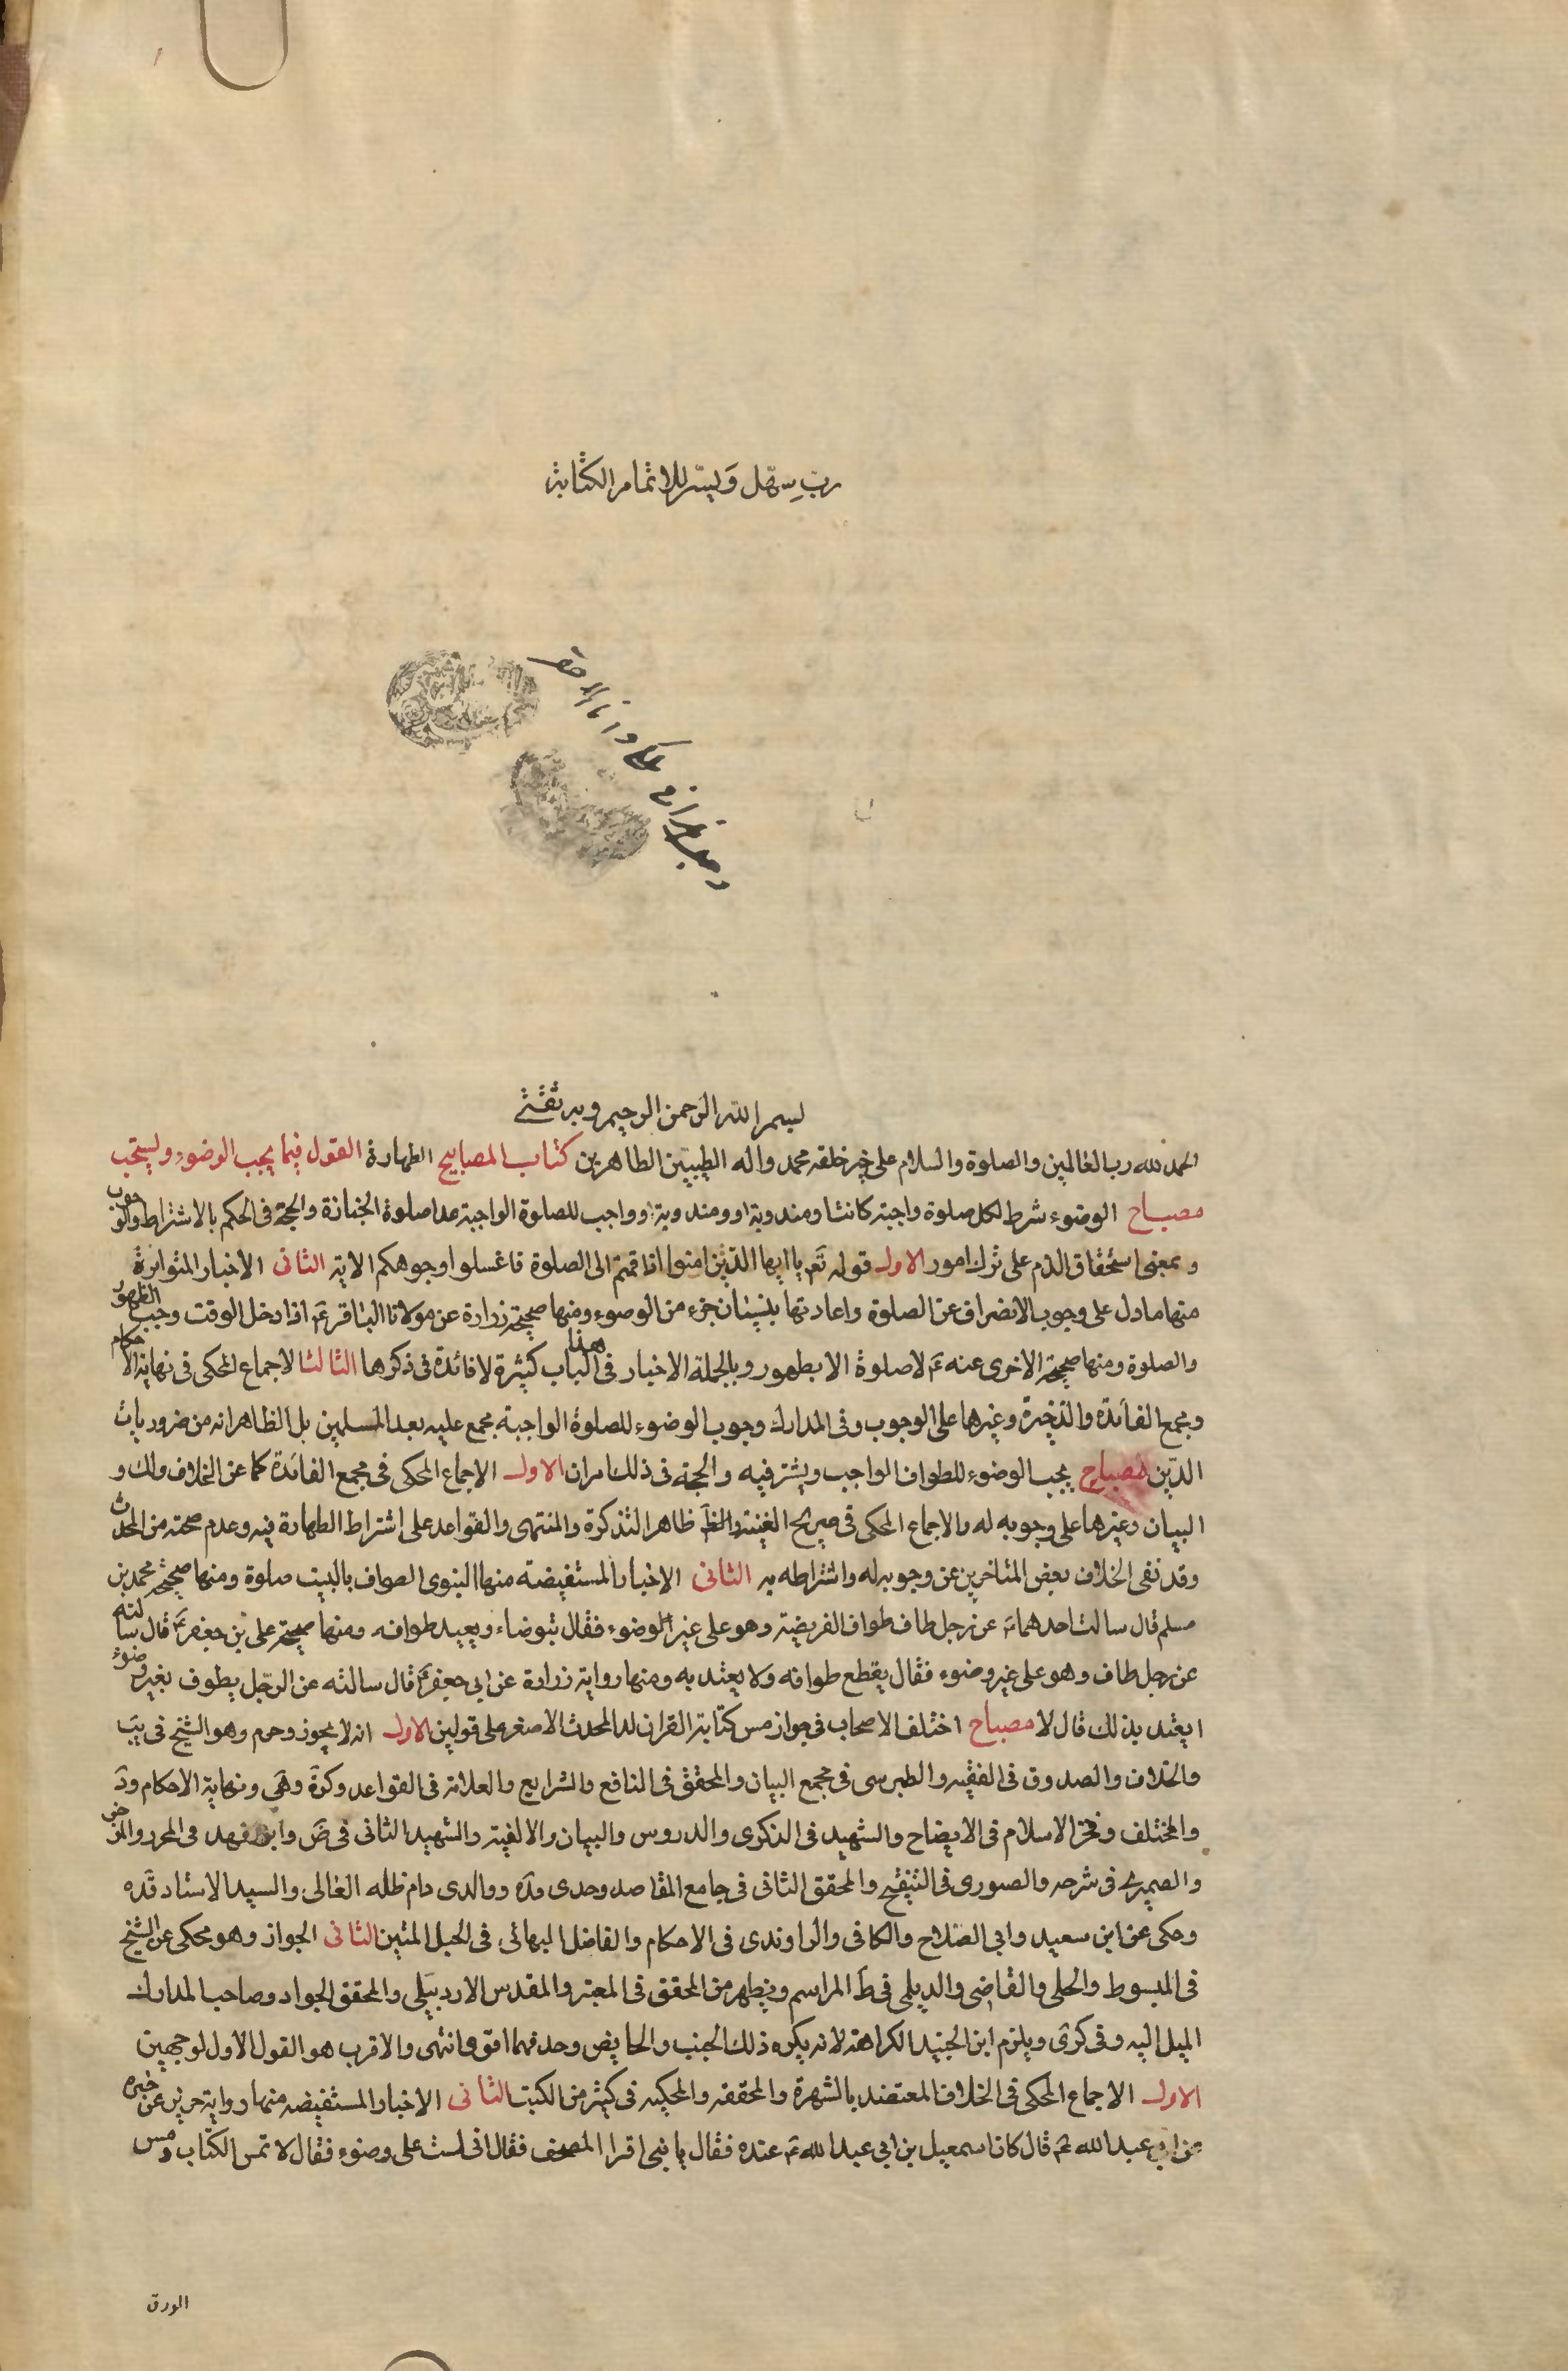 رب سهّل وَيسّر للاتمام الكتابة
بسم الله الرحمن الرحيم وبه ثقتي
الحمد لله رب العالمين والصلوة والسلام على خير خلقه محمد واله الطيبين الطاهرين كتاب المصابيح الطهارة القول فيما يجب الوضوء ويستحب
مصباح الوضوء شرط لكل صلوة واجبة كانت او مندوبة او ومندوبة وواجب للصلوة الواجبة عدا صلوة الجنازة والحجة في الحكم بالاشتراط والوجوب
وبمعنى استحقاق الذم على ترك امور الاول قوله تَع يا ايها الذين امنوا اذا قمتم الى الصلوة فاغسلوا وجوهكم الاية الثانى الاخبار المتواترة
منها ما دل على وجوب الانصراف عن الصلوة واعادتها بنسيان جزء من الوضوء ومنها صحيحة زرارة عن مولانا الباقر عَ اذا دخل الوقت وجب الطهور
والصلوة ومنها صحيحة الاخرى عنه عَ لا صلوة الا بطهور وبالجملة الاخبار في هذا الباب كثيرة لا فائدة في ذكرها الثالث الاجماع المحكى في نهاية الاحكام
ومجمع الفائدة والذخيرة وغيرها على الوجوب وفى المدارك وجوب الوضوء للصلوة الواجبة مجمع عليه بعد المسلمين بل الظاهر انه من ضروريات
الدّين مصباح يجب الوضوء للطواف الواجب ويشتر فيه والحجة في ذلك امران الاول الاجماع المحكى في مجمع الفائدة كما عن الخلاف ولك و
البيان وغيرها على وجوبه له والاجماع المحكى في صريح الغنية والظَ ظاهر التذكرة والمنتهى والقواعد على اشتراط الطهارة فيه وعدم صحته من المحدث
وقد نفى الخلاف بعض المتاخرين عن وجوبه له واشتراطه به الثانى الاخبار المستفيضة منها النبوى الطواف بالبيت صلوة ومنها صحيحة محمد بن
مسلم قال سالت احدهما عَ عن رجل طاف طواف الفريضة وهو على غير الوضوء فقال يتوضاء ويعيد طوافه ومنها صحيحة على بن جعفر عَ قال سالته
عن رجل طاف وهو على غير وضوء فقال يقطع طوافه ولا يعتد به ومنها رواية زرارة عن ابى جعفر عَ قال سالته عن الرّجل يطوف بغير وضوء
ايعتد بذلك قال لا مصباح اختلف الاصحاب في جواز مس كتابة القران للمحدث الاصغر على قولين الاول انه لا يجوز وحرم وهو الشيخ في يَب
والخلاف والصدوق في الفقيه والطبرسى في مجمع البيان والمحقق في النافع والشرايع والعلامة في القواعد وكرَة وهَى ونهاية الاحكام ودَ
والمختلف وفخر الاسلام في الايضاح والشهيد في الذكرى والدروس والبيان والالفية والشهيد الثانى في ضَ وابن فهد في المحرر والموجز
والصيمرى في شرحه والصورى في التنقيح والمحقق الثانى في جامع المقاصد وجدى قدَه ووالدى دام ظله العالى والسيد الاستاد قدَه
وحكى عن ابن سعيد وابى الصلاح والكافى والراوندى في الاحكام والفاضل البهائى في الحبل المتين الثانى الجواز وهو محكى عن الشيخ
في المبسوط والحلى والقاضى والديلمى في طَ المراسم ويظهر من المحقق في المعتبر والمقدس الاردبيلى والمحقق الجواد وصاحب المدارك
الميل اليه وفى كرى ويلزم ابن الجنيد الكراهة لانه يكره ذلك للجنب والحايض وحدثهما اقوى انتهى والاقرب هو القول الاول لوجهين
الاول الاجماع المحكى في الخلاف المعتضد بالشهرة والمحققه والمحكيه في كثير من الكتب الثانى الاخبار المستفيضه منها رواية حريز عن خبره
عن ابى عبد الله عَ قال كان اسمعيل بن ابى عبد الله عَ عنده فقال يا بنى اقرا المصحف فقال انى لست على وضوء فقال لا تمس الكتاب ومس
الورق